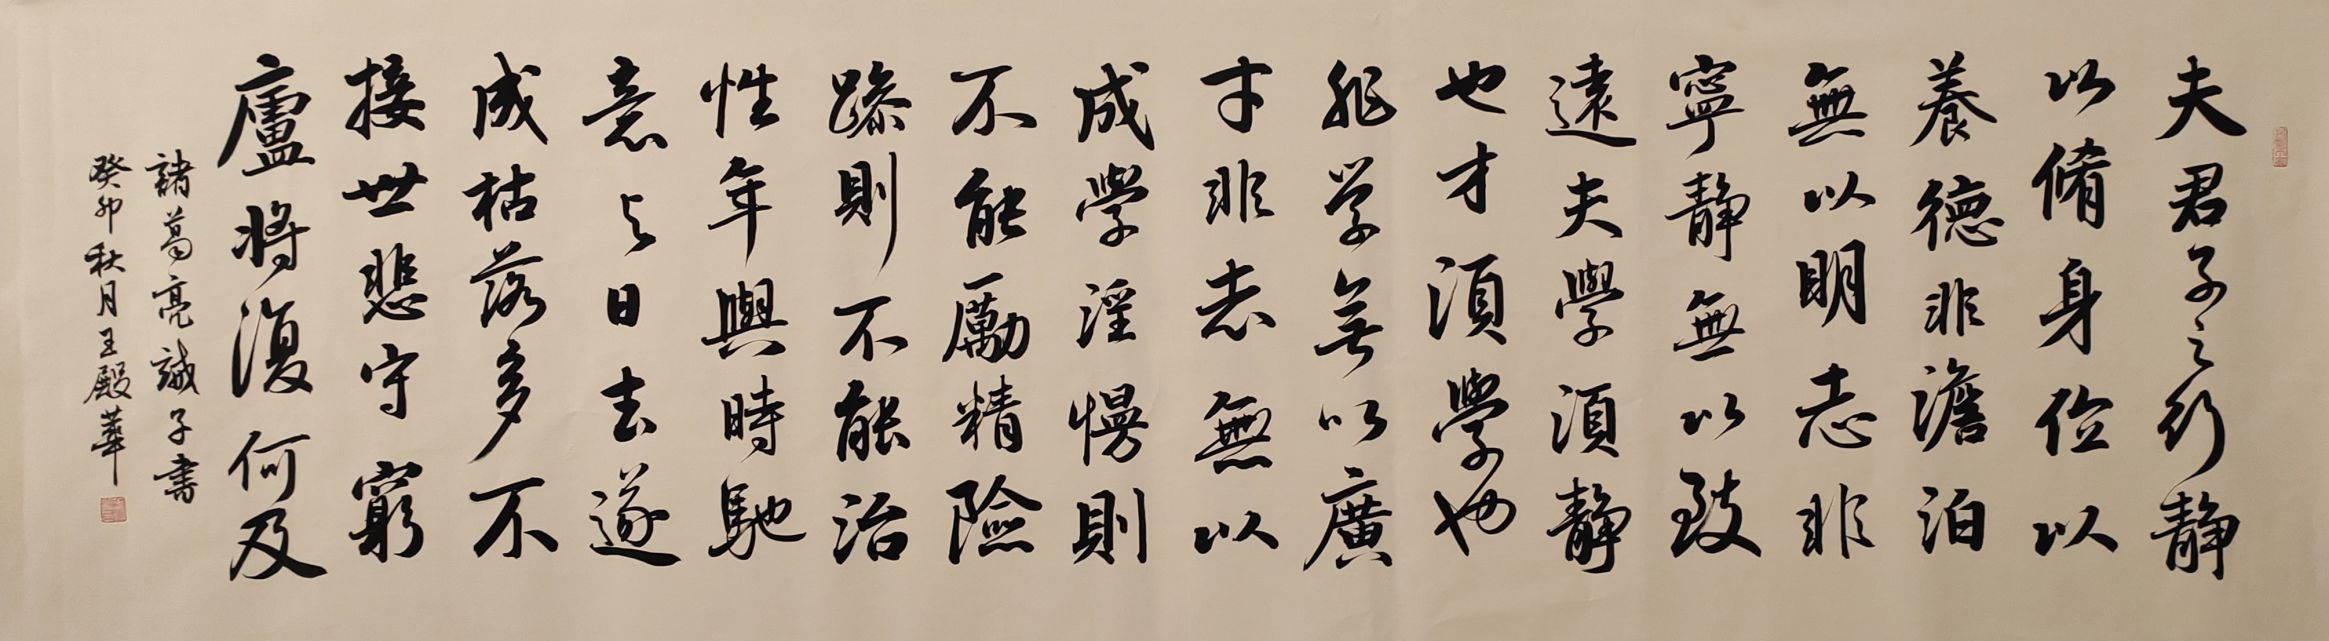 夫君子之行静
以脩身俭以
養德非澹泊
無以明志非
寧静無以致
遠夫學須静
也才須學也
非学無以廣
才非志無以
成學淫慢則
不能勵精險
躁則不能治
性年與時馳
意与日去遂
成枯落多不
接世悲守窮
廬将復何及
諸葛亮誡子書
癸卯秋月王殿華